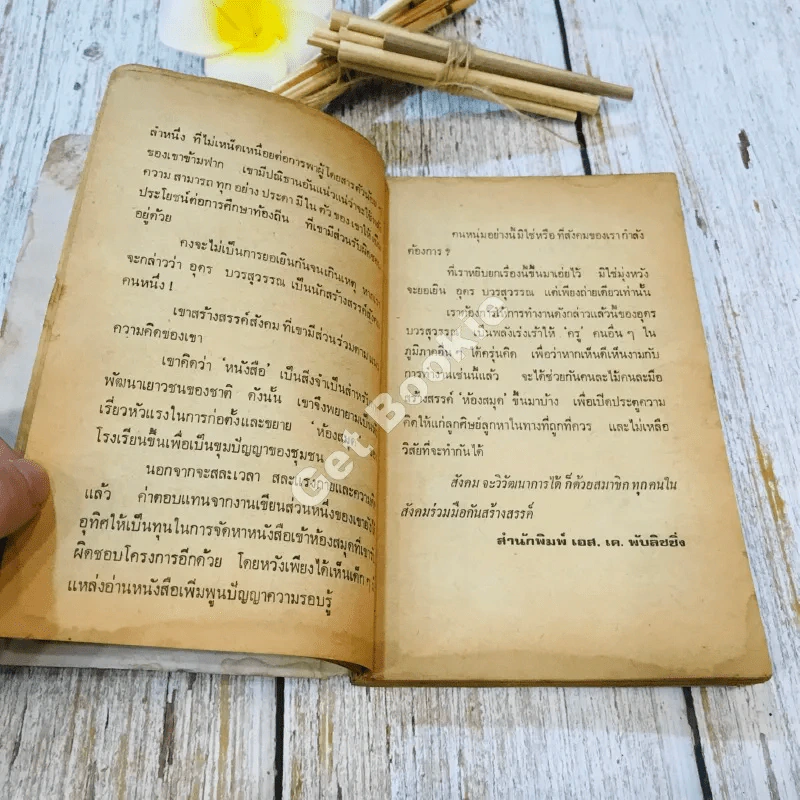 ลำหนึ่ง ที่ไม่เหน็ดเหนื่อยต่อการพาผู้โดยสาร
ของเขาข้ามฟาก เขามีปณิธานอันแน่วแน่ว่าจะใช้
ความ สามารถ ทุก อย่าง ประดา มี ใน ตัว ของ เขา ให้
ประโยชน์ต่อการศึกษาท้องถิ่น ที่เขามีส่วน
อยู่ด้วย
คงจะไม่เป็นการยอเยินกันจนเกินเหตุ
จะกล่าวว่า อุดร บวรสุวรรณ เป็นนักสร้างสรรค์สังคม
คนหนึ่ง !
เขาสร้างสรรค์สังคม ที่เขามีส่วนร่วมตาม
ความคิดของเขา
เขาคิดว่า ‘หนังสือ’ เป็นสิ่งจำเป็นสำหรับ
พัฒนาเยาวชนของชาติ ดังนั้น เขาจึงพยายาม
เรี่ยวหัวแรงในการก่อตั้งและขยาย ‘ห้องสมุด’
โรงเรียนขึ้นเพื่อเป็นขุมปัญญาของชุมชน
นอกจากจะสละเวลา สละแรงกายและความคิด
แล้ว ค่าตอบแทนจากงานเขียนส่วนหนึ่งของเขา
อุทิศให้เป็นทุนในการจัดหาหนังสือเข้าห้องสมุดที่เขา
ผิดชอบโครงการอีกด้วย โดยหวังเพียงได้เห็นเด็ก ๆ
แหล่งอ่านหนังสือเพิ่มพูนปัญญาความรอบรู้
คนหนุ่มอย่างนี้มิใช่หรือ ที่สังคมของเรากำลัง
ต้องการ ?
ที่เราหยิบยกเรื่องนี้ขึ้นมาเอ่ยไว้ มิใช่มุ่งหวัง
จะยอเยิน อุดร บวรสุวรรณ แต่เพียงถ่ายเดียวเท่านั้น
เราต้องการให้การทำงานดังกล่าวแล้วนี้ของอุดร
บวรสุวรรณ เป็นพลังเร่งเร้าให้ ‘ครู’ คนอื่น ๆ ใน
ภูมิภาคอื่น ๆ ได้ครุ่นคิด เพื่อว่าหากเห็นดีเห็นงามกับ
การทำงานเช่นนี้แล้ว จะได้ช่วยกันคนละไม้คนละมือ
สร้างสรรค์ ‘ห้องสมุด’ ขึ้นมาบ้าง เพื่อเปิดประตูความ
คิดให้แก่ลูกศิษย์ลูกหาในทางที่ถูกที่ควร และไม่เหลือ
วิสัยที่จะทำกันได้
สังคม จะวิวัฒนาการได้ ก็ด้วยสมาชิก ทุก คนใน
สังคมร่วมมือกันสร้างสรรค์
สำนักพิมพ์ เอส. เค. พับลิชชิ่ง
Get Bookie